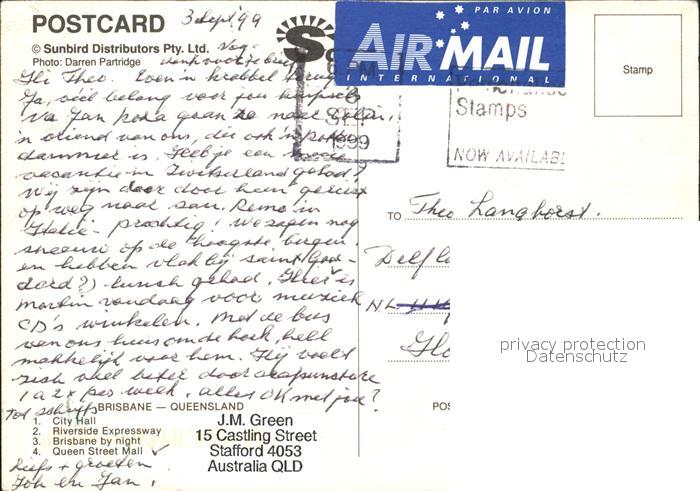 POSTCARD
3 Sept '99
© Sunbird Distributors Pty. Ltd.
Photo: Darren Partridge
Hi Theo. Even 'n krabbel terug.
Ja, veel belang voor jou
Via Jan gaan ze naar
'n vriend van ons, die ook 'n
dammer is. Heb je een mooie
vacantie in Zwitserland gehad?
Wij zijn daar door heen gereist
op weg naar San. Remo in
Italië - prachtig! We zagen nog
sneeuw op de hoogste bergen
en hebben vlakbij saint God-
dard?) lunch gehad. Hier is
Martin vandaag voor muziek
CD's winkelen. Met de bus
van ons huis om de hoek, heel
makkelijk voor hem. Hij voelt
zich veel beter door acupuncture
1 a 2x per week. alles OK met jou?
Tot schrijfs
BRISBANE – QUEENSLAND
1. City Hall
2. Riverside Expressway
3. Brisbane by night
4. Queen Street Mall
Liefs + groeten
Joh en Jan.
J.M. Green
15 Castling Street
Stafford 4053
Australia QLD
PAR AVION
AIR MAIL
INTERNATIONAL
SEP
1999
Stamps
NOW AVAILABL
Stamp
TO Theo Langhorst.
Delfl
N.L.
privacy protection
Datenschutz
POS